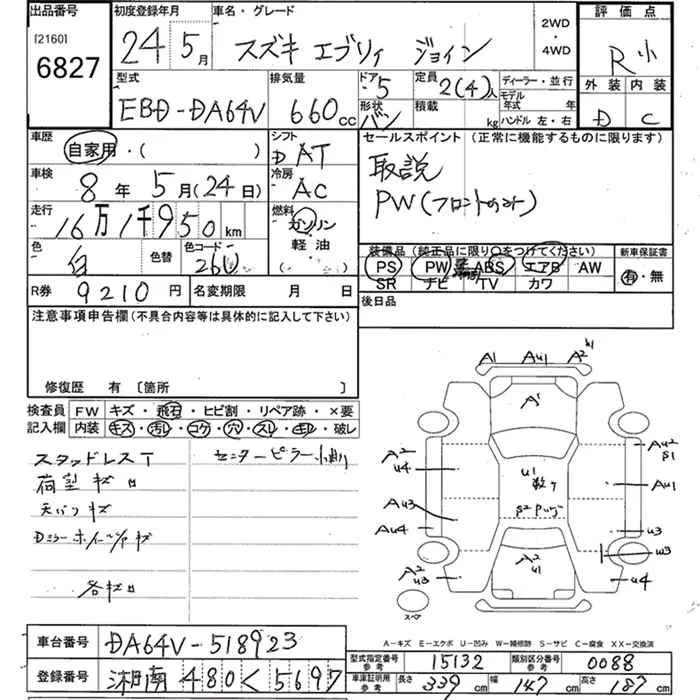 出品番号 初度登録年月 車名・グレード 2WD・4WD 評価点
[2160] 6827 24年5月 スズキ エブリイ ジョイン R小
型式 排気量 ドア 5 定員 2(4)人 ディーラー・並行 外装 内装
EBD-DA64V 660cc 形状 バン 積載 kg モデル年式 年 ハンドル 左・右 D C
車歴 自家用・( ) シフト DAT セールスポイント (正常に機能するものに限ります)
車検 8年5月(24日) 冷房 AC 取説
走行 16万1千950km 燃料 ガソリン・軽油 ( ) PW(フロントのみ)
色 白 色替 色コード 26U 装備品 (純正品に限り○をつけてください) 新車保証書
PS PW ABS エアB AW 有・無
SR ナビ TV カワ
R券 9210円 名変期限 月 日 後日品
注意事項申告欄(不具合内容等は具体的に記入して下さい)
修復歴 有 [箇所 ]
検査員 FW キズ・飛石・ヒビ割・リペア跡・×要
記入欄 内装 キズ・汚レ・コゲ・穴・スレ・キレ・破レ
スタッドレスT センターピラー小凹
荷室キズ凹
天バリキズ
Dミラーホイールキャキズ
各キズ凹
A1 AU1 A2 U1
A1
A2 U4
U1
AU2 S1
AU1
AU3
AU4
U3
W3
A2 U3
A2 U1
U4
スペア
A-キズ E-エクボ U-凹み W-補修跡 S-サビ C-腐食 XX-交換済
車台番号 DA64V-518923
登録番号 湘南 480 く 5697
型式指定番号 参考 15132 類別区分番号 参考 0088
車庫証明用 参考 長さ 339cm 幅 147cm 高さ 187cm